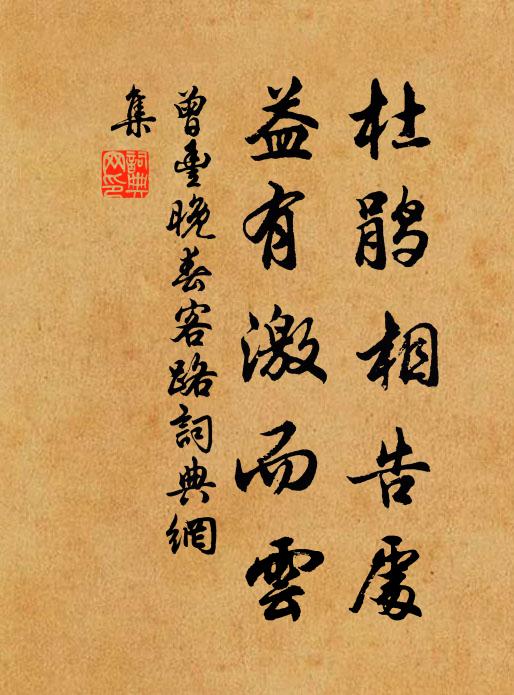 杜鹃相告處
益有激而雲
曾豐晚春客路詞典網
集
詞典網印